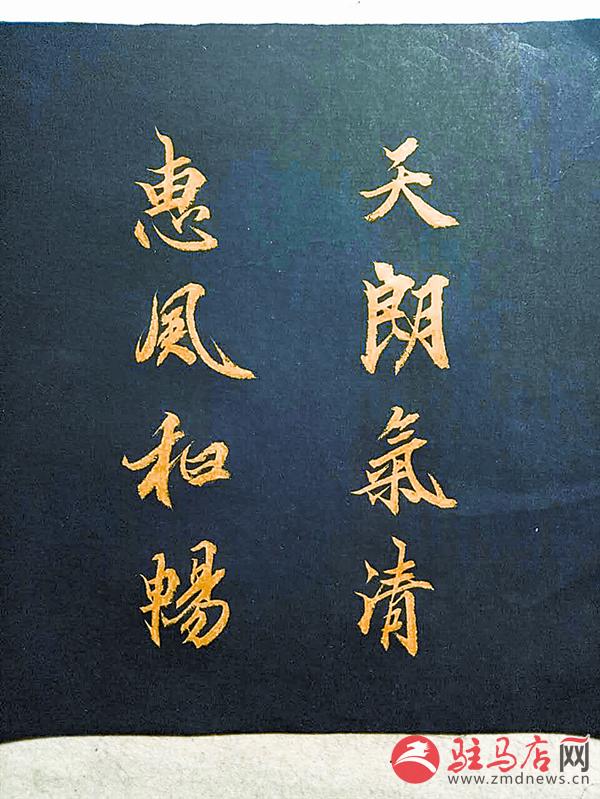 天朗氣清
惠風和暢
驻马店网
www.zmdnews.cn